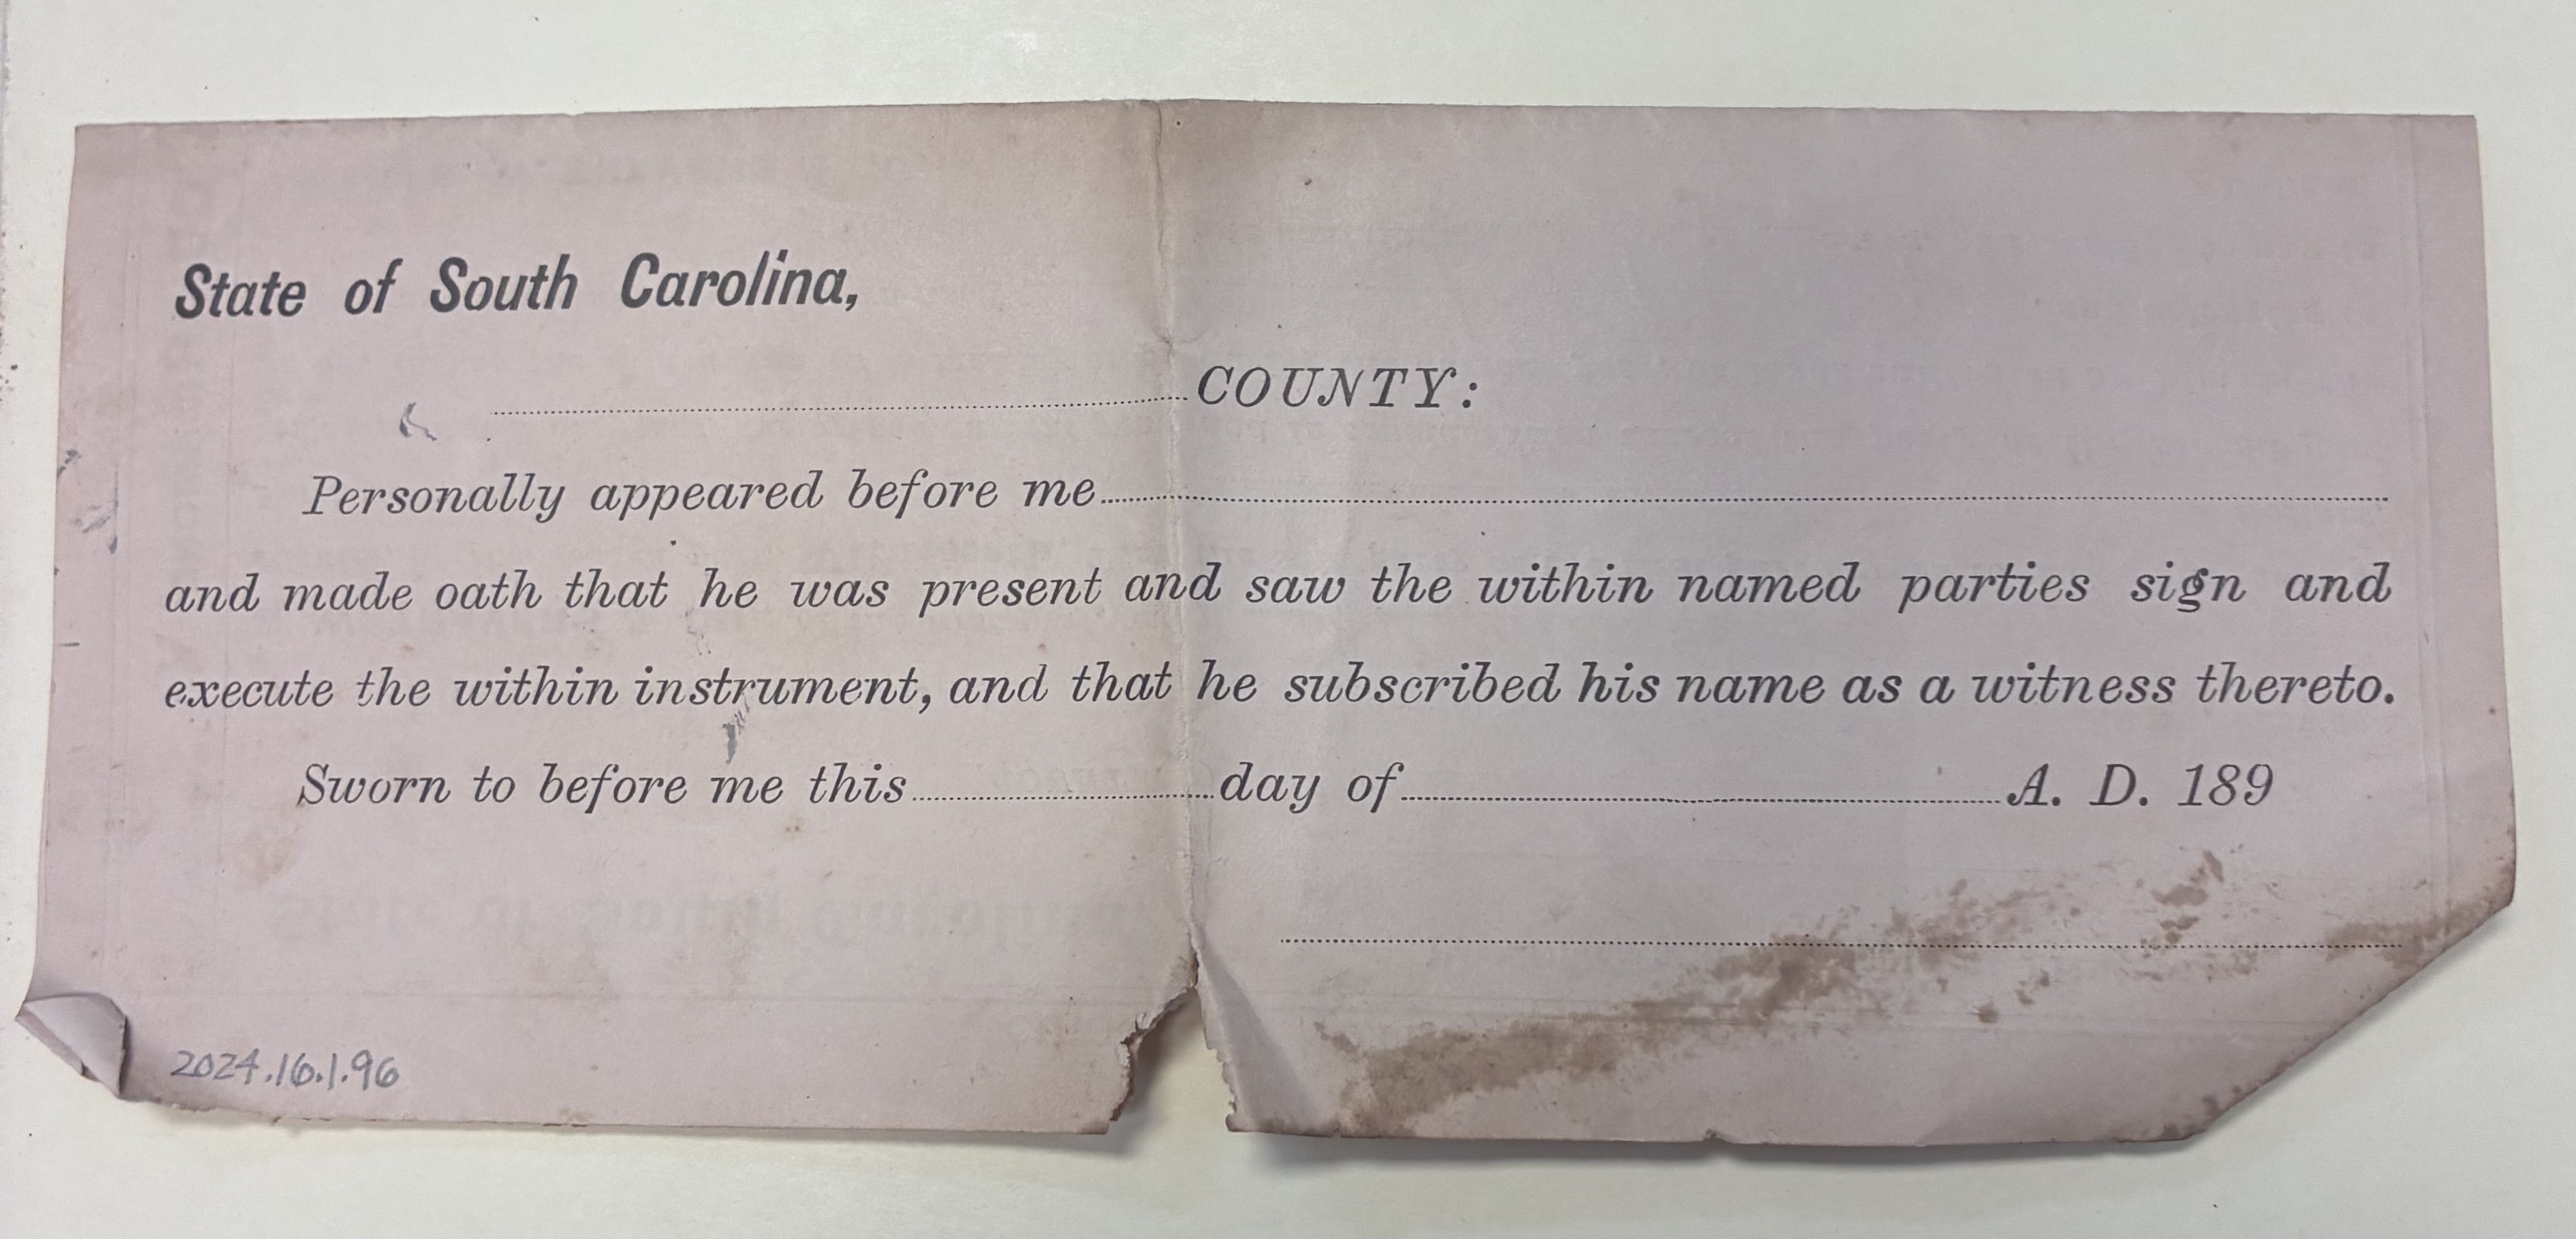 State of South Carolina,
COUNTY:
Personally appeared before me
and made oath that he was present and saw the within named parties sign and
execute the within instrument, and that he subscribed his name as a witness thereto.
Sworn to before me this day of A. D. 189
2024.16.1.96